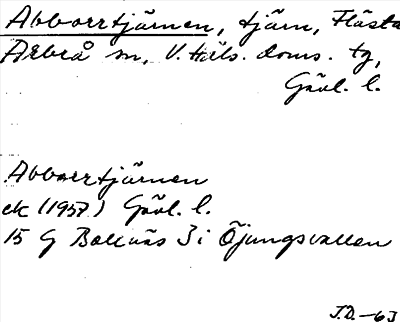 Abborrtjärnen, tjärn, Flästa
Arbrå sn, V. Häls. doms. tg,
Gävl. l.
Abborrtjärnen
ek (1957) Gävl. l.
15 G Bollnäs 3 i Öjungsvallen
J.D. -63